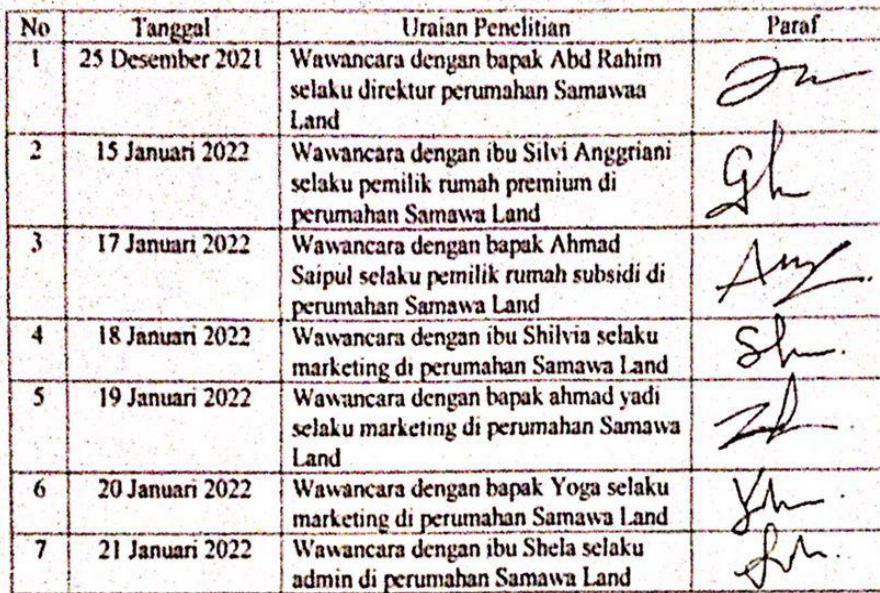 No Tanggal Uraian Penelitian Paraf
1 25 Desember 2021 Wawancara dengan bapak Abd Rahim
selaku direktur perumahan Samawaa
Land
2 15 Januari 2022 Wawancara dengan ibu Silvi Anggriani
selaku pemilik rumah premium di
perumahan Samawa Land
3 17 Januari 2022 Wawancara dengan bapak Ahmad
Saipul selaku pemilik rumah subsidi di
perumahan Samawa Land
4 18 Januari 2022 Wawancara dengan ibu Shilvia selaku
marketing di perumahan Samawa Land
5 19 Januari 2022 Wawancara dengan bapak ahmad yadi
selaku marketing di perumahan Samawa
Land
6 20 Januari 2022 Wawancara dengan bapak Yoga selaku
marketing di perumahan Samawa Land
7 21 Januari 2022 Wawancara dengan ibu Shela selaku
admin di perumahan Samawa Land